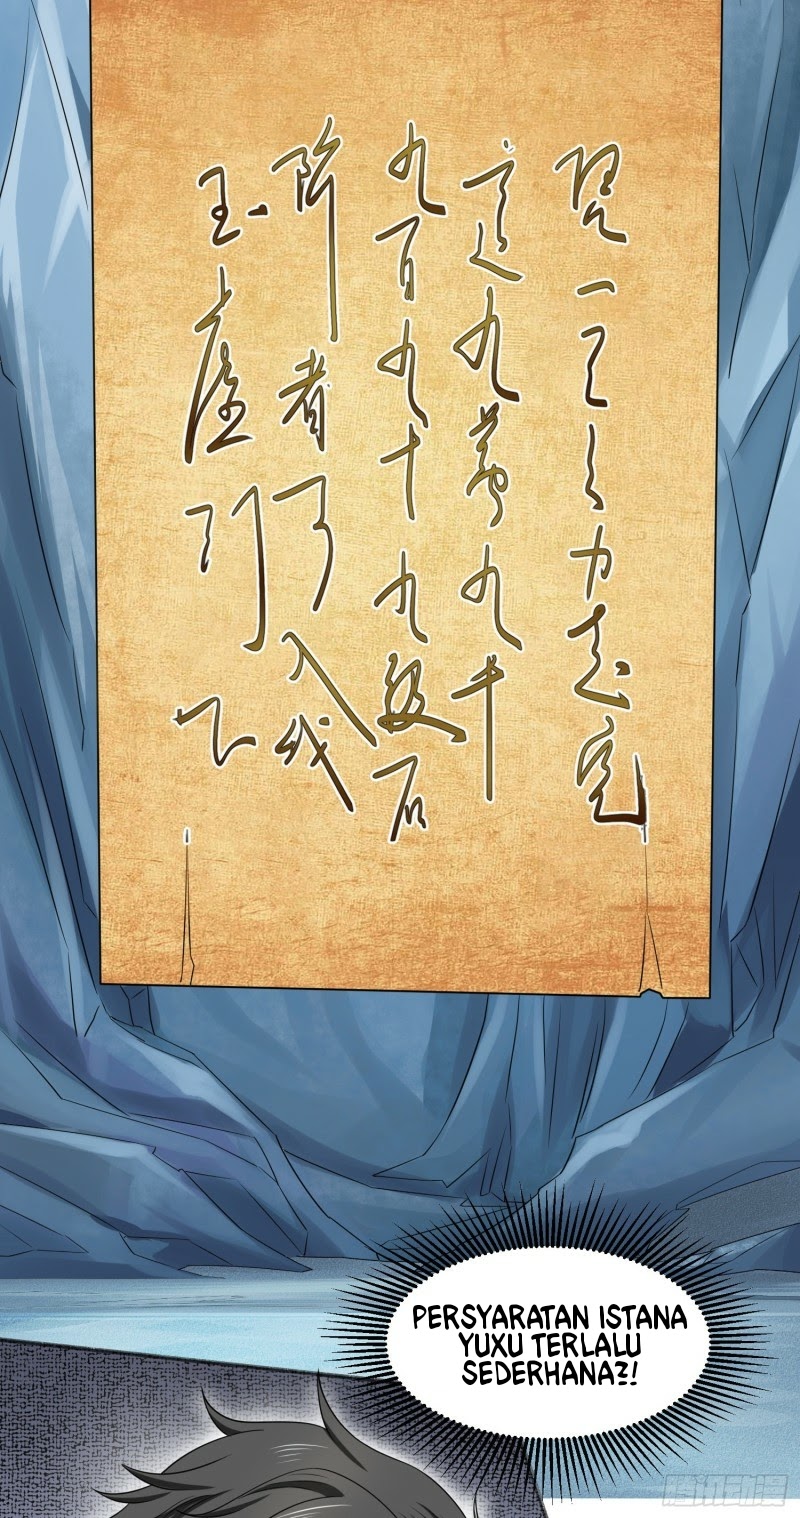 凭一己之力走完
这九萬九千
九百九十九级石
阶者可入我
玉虚门下
PERSYARATAN ISTANA
YUXU TERLALU
SEDERHANA?!
腾讯动漫